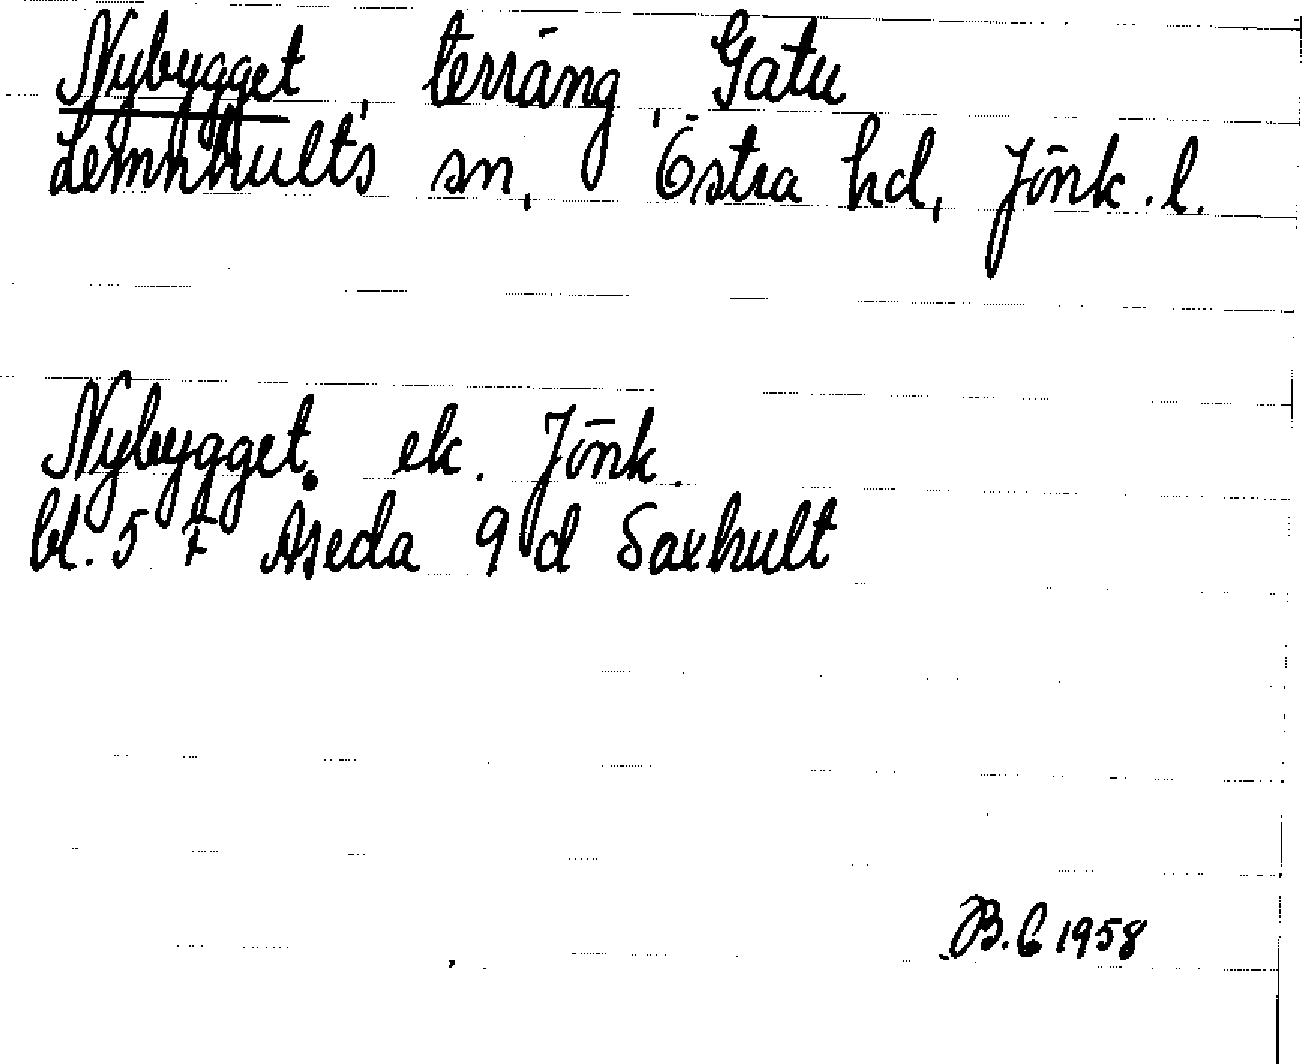 Nybygget, terräng, Gatu
Lemnhults sn, Östra hd, Jönk. l.
Nybygget. ek. Jönk.
bl. 5 F Åseda 9 d Saxhult
B.C 1958